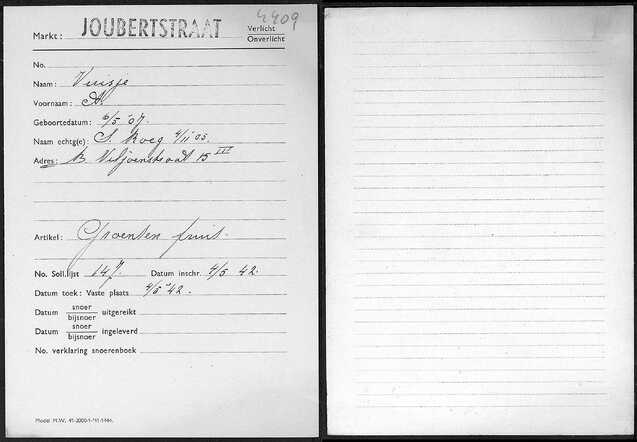 4409
Markt: JOUBERTSTRAAT Verlicht
Onverlicht
No.
Naam: Vuisje
Voornaam: A.
Geboortedatum: 6/5 '07.
Naam echtg(e): S. Koeg 4/11 05.
Adres: B. Viljoenstraat 15 III
Artikel: Groenten fruit.
No. Soll.lijst 147. Datum inschr. 4/5 42.
Datum toek: Vaste plaats 4/5 '42.
Datum snoer
bijsnoer uitgereikt
Datum snoer
bijsnoer ingeleverd
No. verklaring snoerenboek